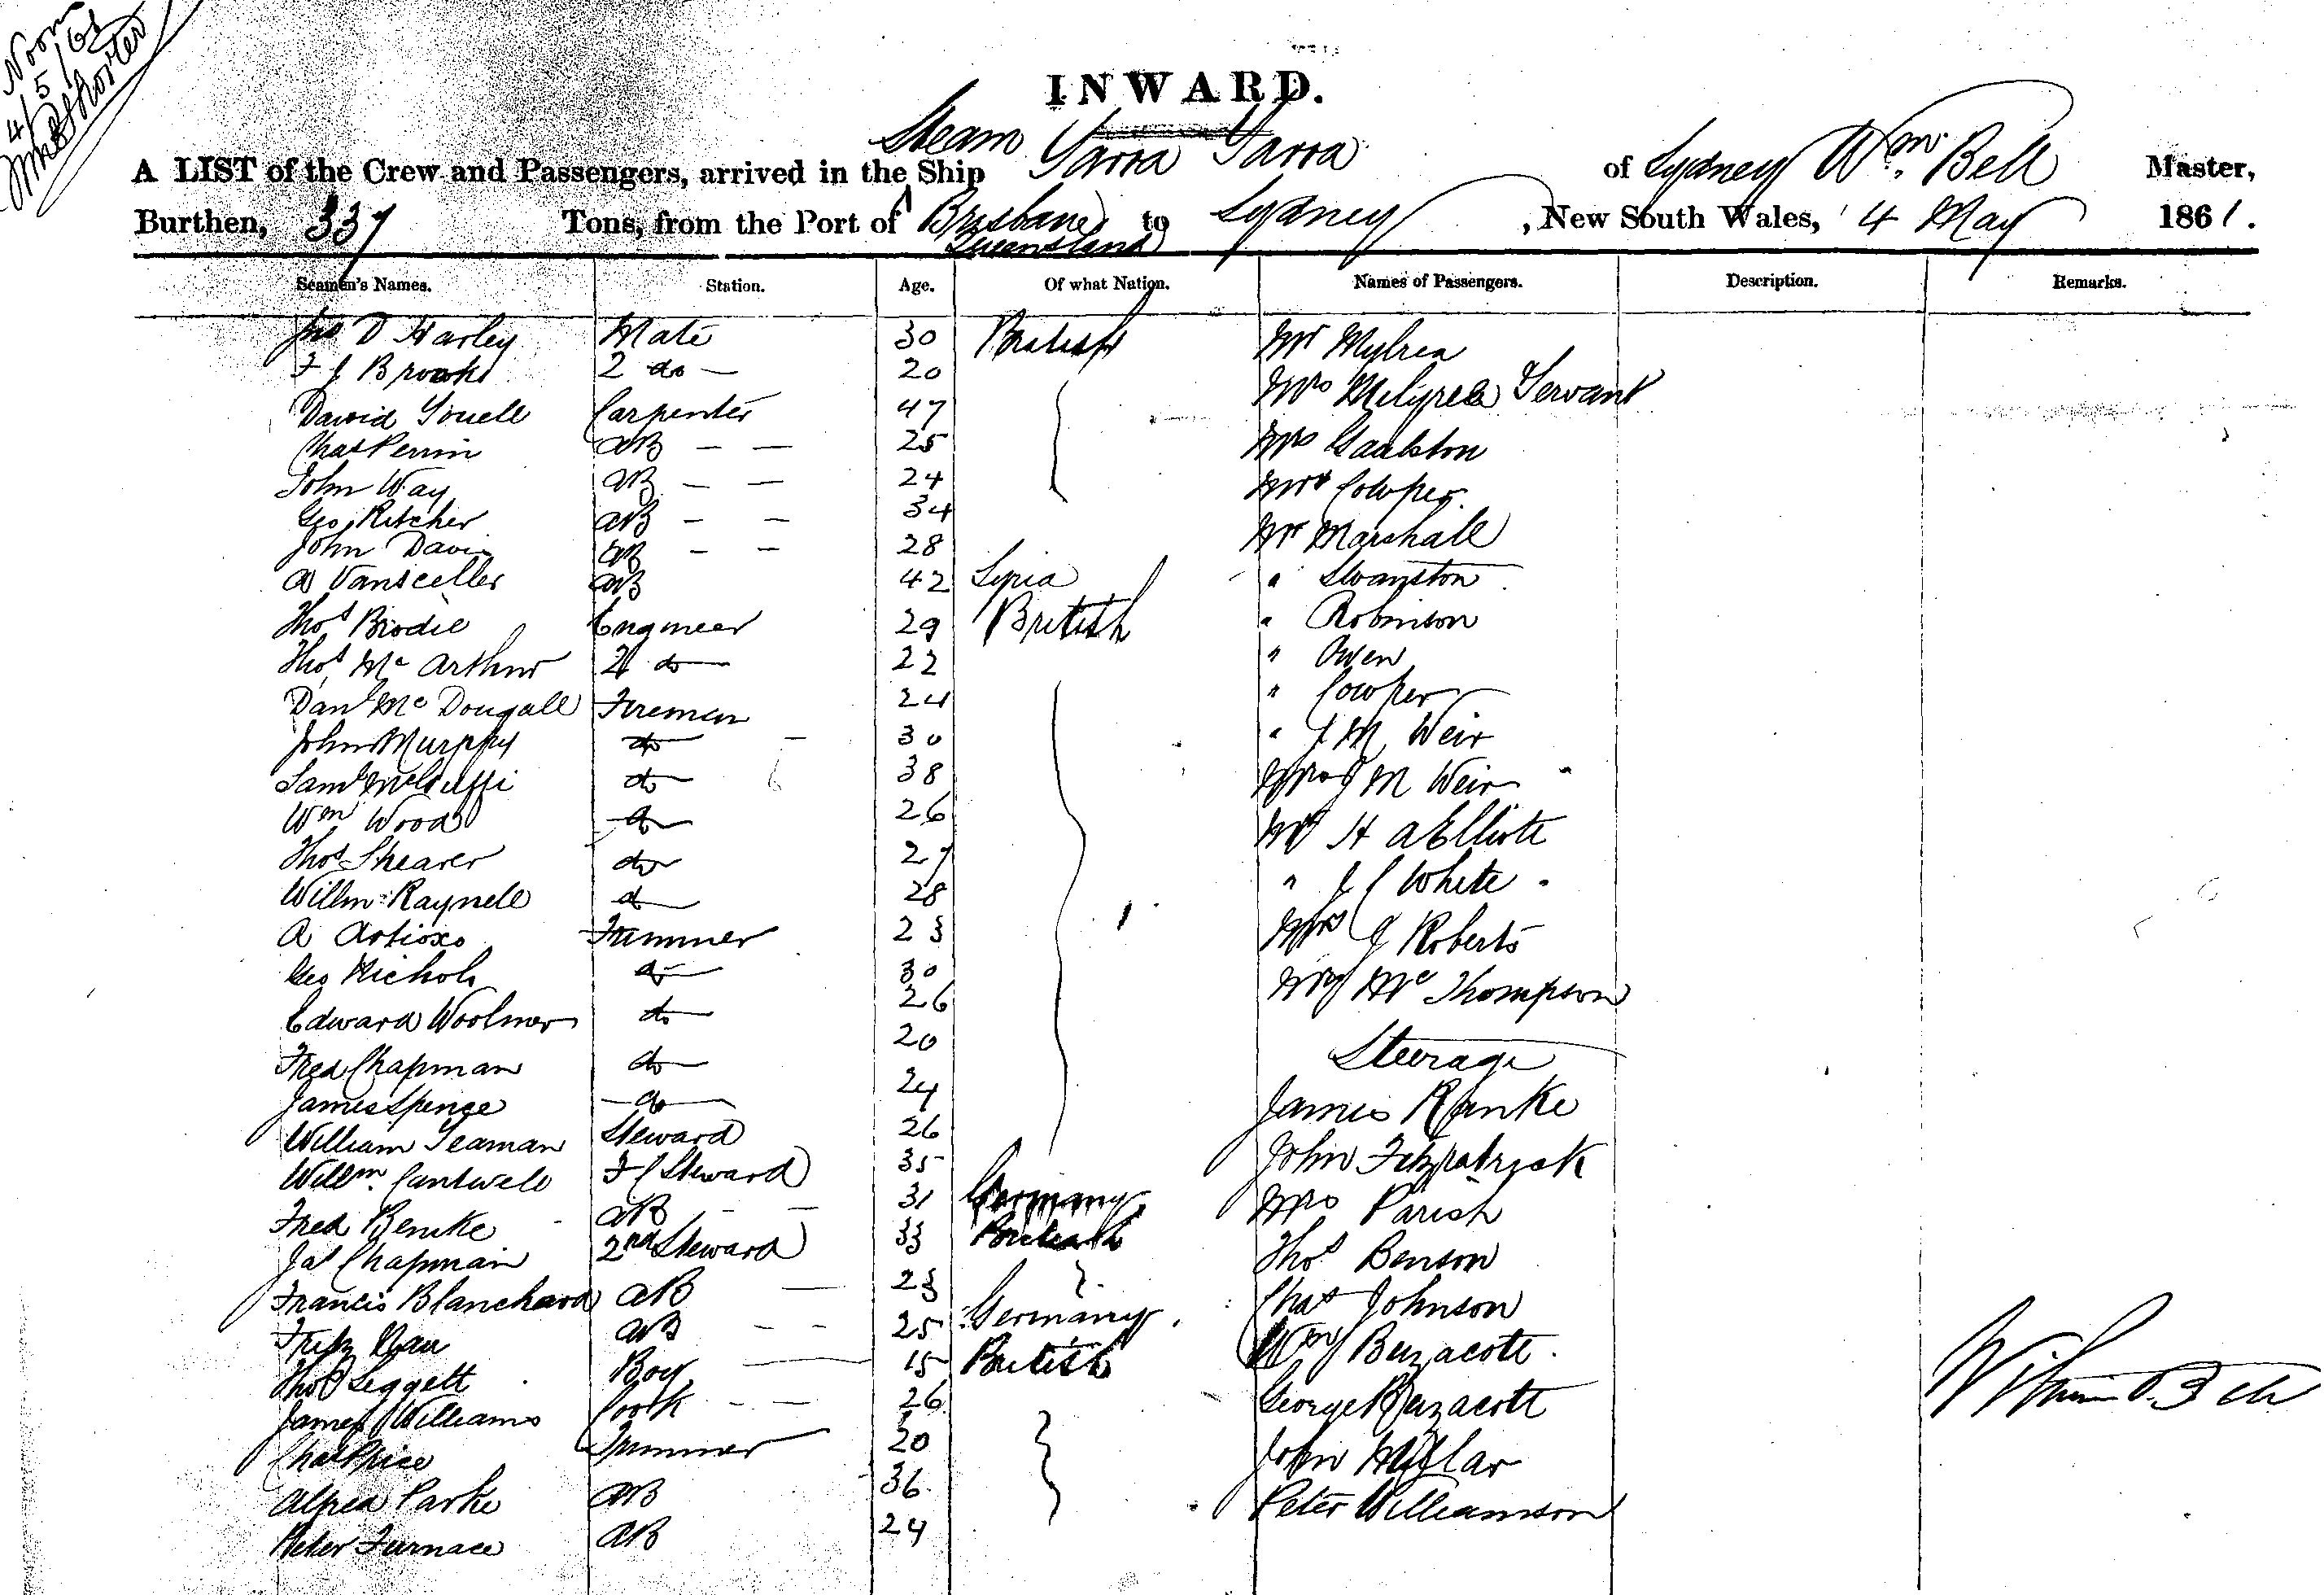 Noon
4/5/61
INWARD.
Steam Yarra Yarra
A LIST of the Crew and Passengers, arrived in the Ship of Sydney Wm. Bell Master,
Burthen, 337 Tons, from the Port of Brisbane Queensland to Sydney, New South Wales, 4 May 1861.
Seamen's Names. Station. Age. Of what Nation. Names of Passengers. Description. Remarks.
Jno D Harley Mate 30 British Mr Mylrea
F J Brooks 2 do 20 Mrs Servant
David Youell Carpenter 47 Mrs
Chas Perrin AB 25 Mrs Cowper
John Way AB 24 Mr Marshall
Geo Ritcher AB 34 " Swanston
John Davis AB 28 " Robinson
A Vansceller AB 42 Syria " Owen
Thos Brodie Engineer 29 British " Cowper
Thos Mc Arthur 2 do 22 " J M Weir
Danl Mc Dougall Fireman 24 Mrs J M Weir
John Murphy do 30 Mr H A Elliott
Saml do 38 " J C White
Wm Wood do 26 Mrs J Roberts
Thos Shearer do 27 Mc Thompson
Willm Raynell do 28 Steerage
A Trimmer 23 James Ranke
Geo Nichols do 30 John Fitzpatrick
Edward Woolmer do 26 Mrs Parish
Fred Chapman do 20 Thos Benson
James Spence do 24 Chas Johnson
William Seaman Steward 26 Wm Buzacott
Willm Cantwell F C Steward 35 George Buzacott
Fred Bencke AB 31 Germany John
Jas Chapman 2nd Steward 33 British Peter Williamson
Francis Blanchard AB 23
Fritz Rau AB 25 Germany
Thos Leggett Boy 15 British
James Williams Cook 26
Chas Price Trimmer 20
Alfred Parke AB 36
Peter Furnace AB 24
William Bell